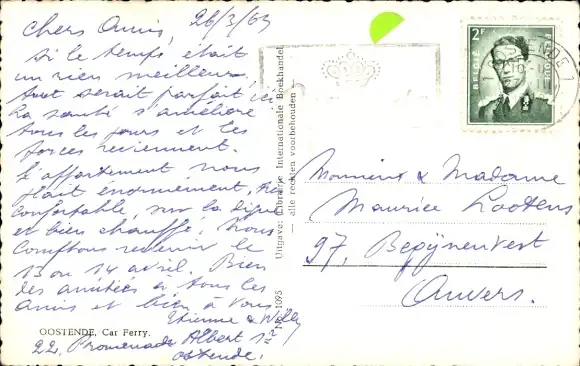 Chers Amis, 26/3/63
si le temps était
un rien meilleur,
tout serait parfait ici
La santé s'améliore
tous les jours et les
forces reviennent.
L'appartement nous
plait enormément, très
confortable, sur la digue
et bien chauffé. Nous
comptons revenir le
13 ou 14 avril. Bien
des amitiés à tous les
amis et bien à vous
Etienne & Willy
OOSTENDE, Car Ferry.
22, Promenade Albert 1er
Oostende.
Uitgave: Librairie Internationale Boekhandel
— alle rechten voorbehouden —
1095
2F
BELGIE
Monsieur & Madame
Maurice Lootens
97, Begijnenvest
Anvers.